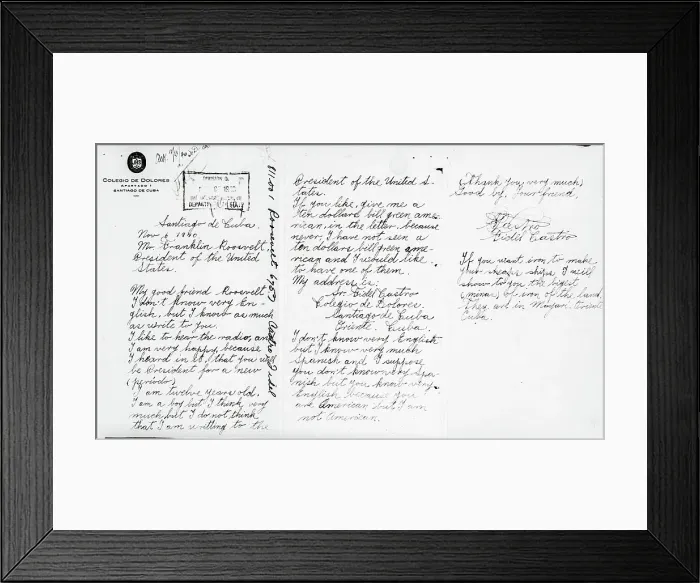 COLEGIO DE DOLORES
APARTADO 1
SANTIAGO DE CUBA
Santiago de Cuba.
Nov 6 1940.
Mr. Franklin Roosevelt,
President of the United
States.
My good friend Roosevelt
I don't know very En-
glish, but I know as much
as write to you.
I like to hear the radio, and
I am very happy, because
I heard in it, that you will
be President for a new
(periodo)
I am twelve years old.
I am a boy but I think very
much but I do not think
that I am writting to the
811.001 Roosevelt
Castro, Fidel
President of the United S-
tates.
If you like, give me a
ten dollars bill green ame-
rican, in the letter, because
never, I have not seen a
ten dollars bill green ame-
rican and I would like
to have one of them.
My address is:
Sr. Fidel Castro
Colegio de Dolores.
Santiago de Cuba
Oriente. Cuba.
I don't know very English
but I know very much
Spanish and I suppose
you don't know very Spa-
nish but you know very
English because you
are American but I am
not American.
(Thank you very much)
Good by. Your friend,
Fidel Castro
If you want iron to make
your ships I will
show to you the bigest
(minas) of iron of the land.
They are in Mayari. Oriente
Cuba.